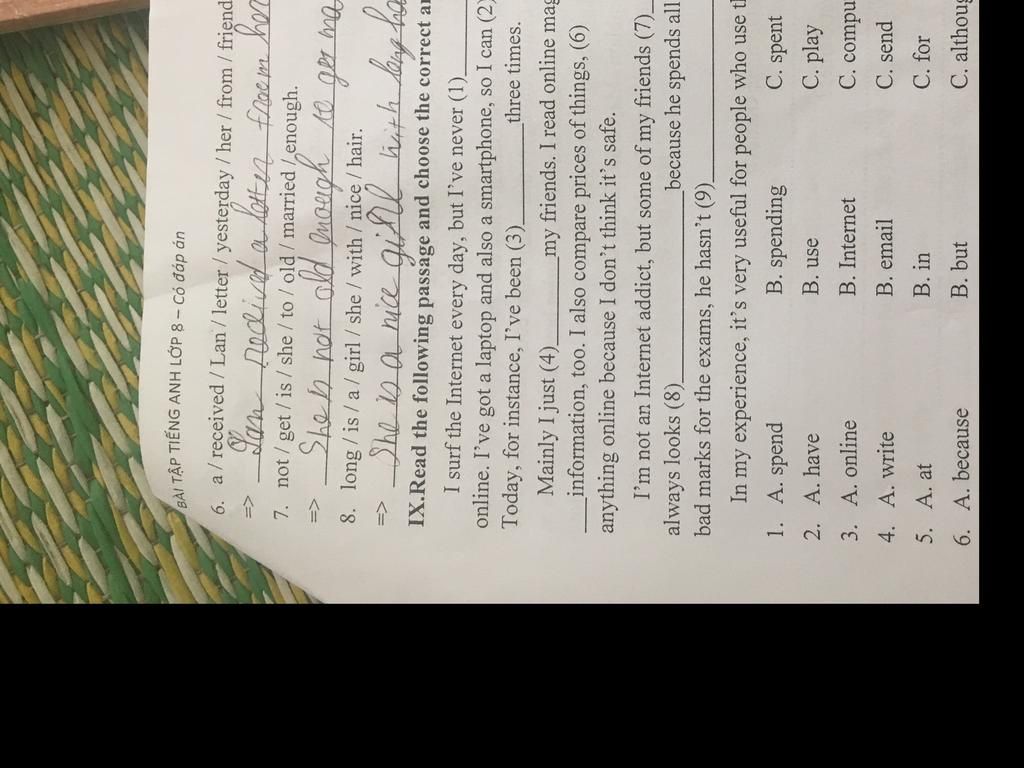 BÀI TẬP TIẾNG ANH LỚP 8 – Có đáp án
6. a / received / Lan / letter / yesterday / her / from / friend
=> Lan received a letter from her
7. not / get / is / she / to / old / married / enough.
=> She is not old enough to get
8. long / is / a / girl / she / with / nice / hair.
=> She is a nice with long
IX.Read the following passage and choose the correct
I surf the Internet every day, but I've never (1)
online. I've got a laptop and also a smartphone, so I can (2)
Today, for instance, I've been (3)________three times.
Mainly I just (4)________my friends. I read online
___information, too. I also compare prices of things, (6)
anything online because I don't think it's safe.
I'm not an Internet addict, but some of my friends (7)
always looks (8)________because he spends all
bad marks for the exams, he hasn't (9)
In my experience, it's very useful for people who use
1. A. spend B. spending C. spent
2. A. have B. use C. play
3. A. online B. Internet C. compu
4. A. write B. email C. send
5. A. at B. in C. for
6. A. because B. but C. althoug